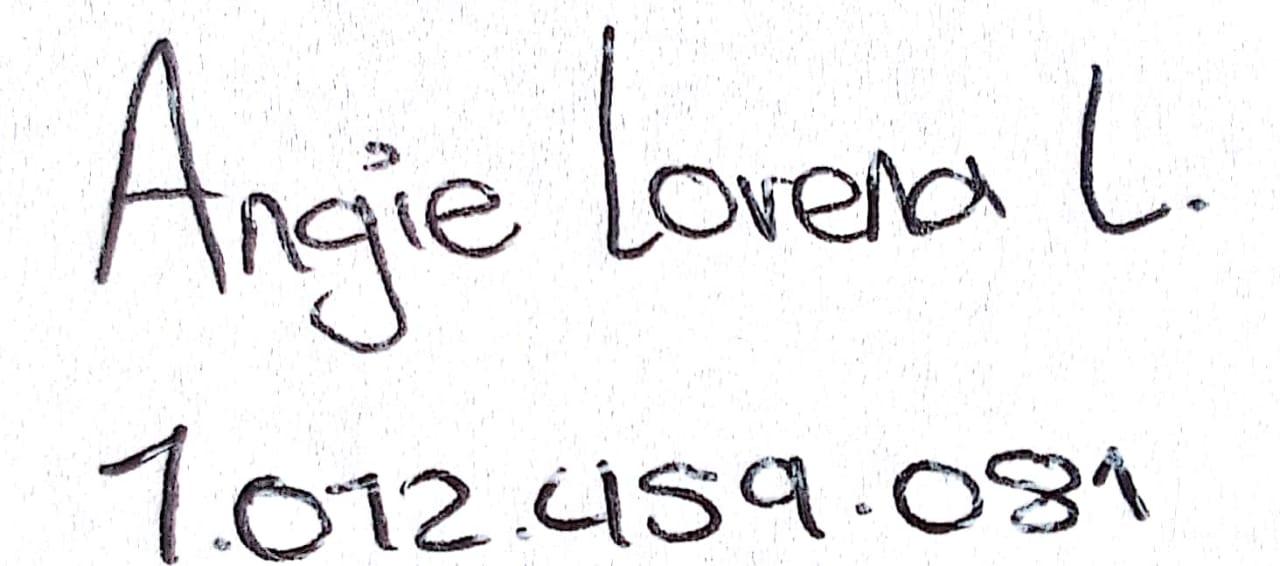 Angie Lorena L.
1.012.459.081